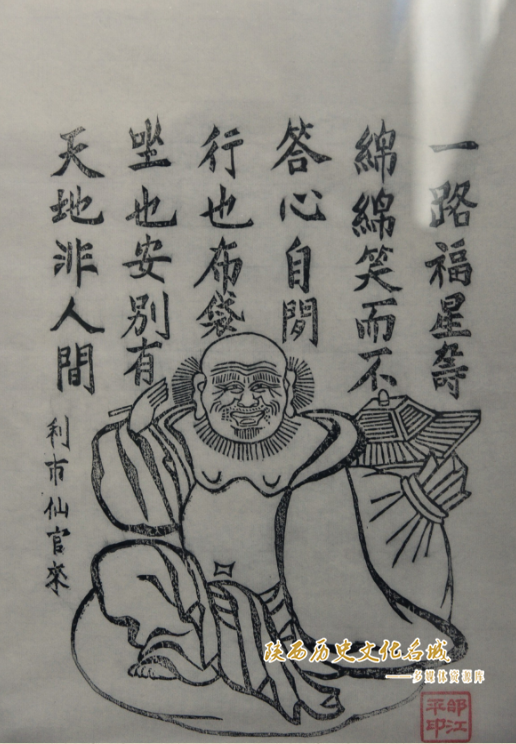 一路福星壽
綿綿笑而不
答心自閒
行也布袋
坐也安別有
天地非人間
利市仙官來
陕西历史文化名城
——多媒体资源库
邰江
平印